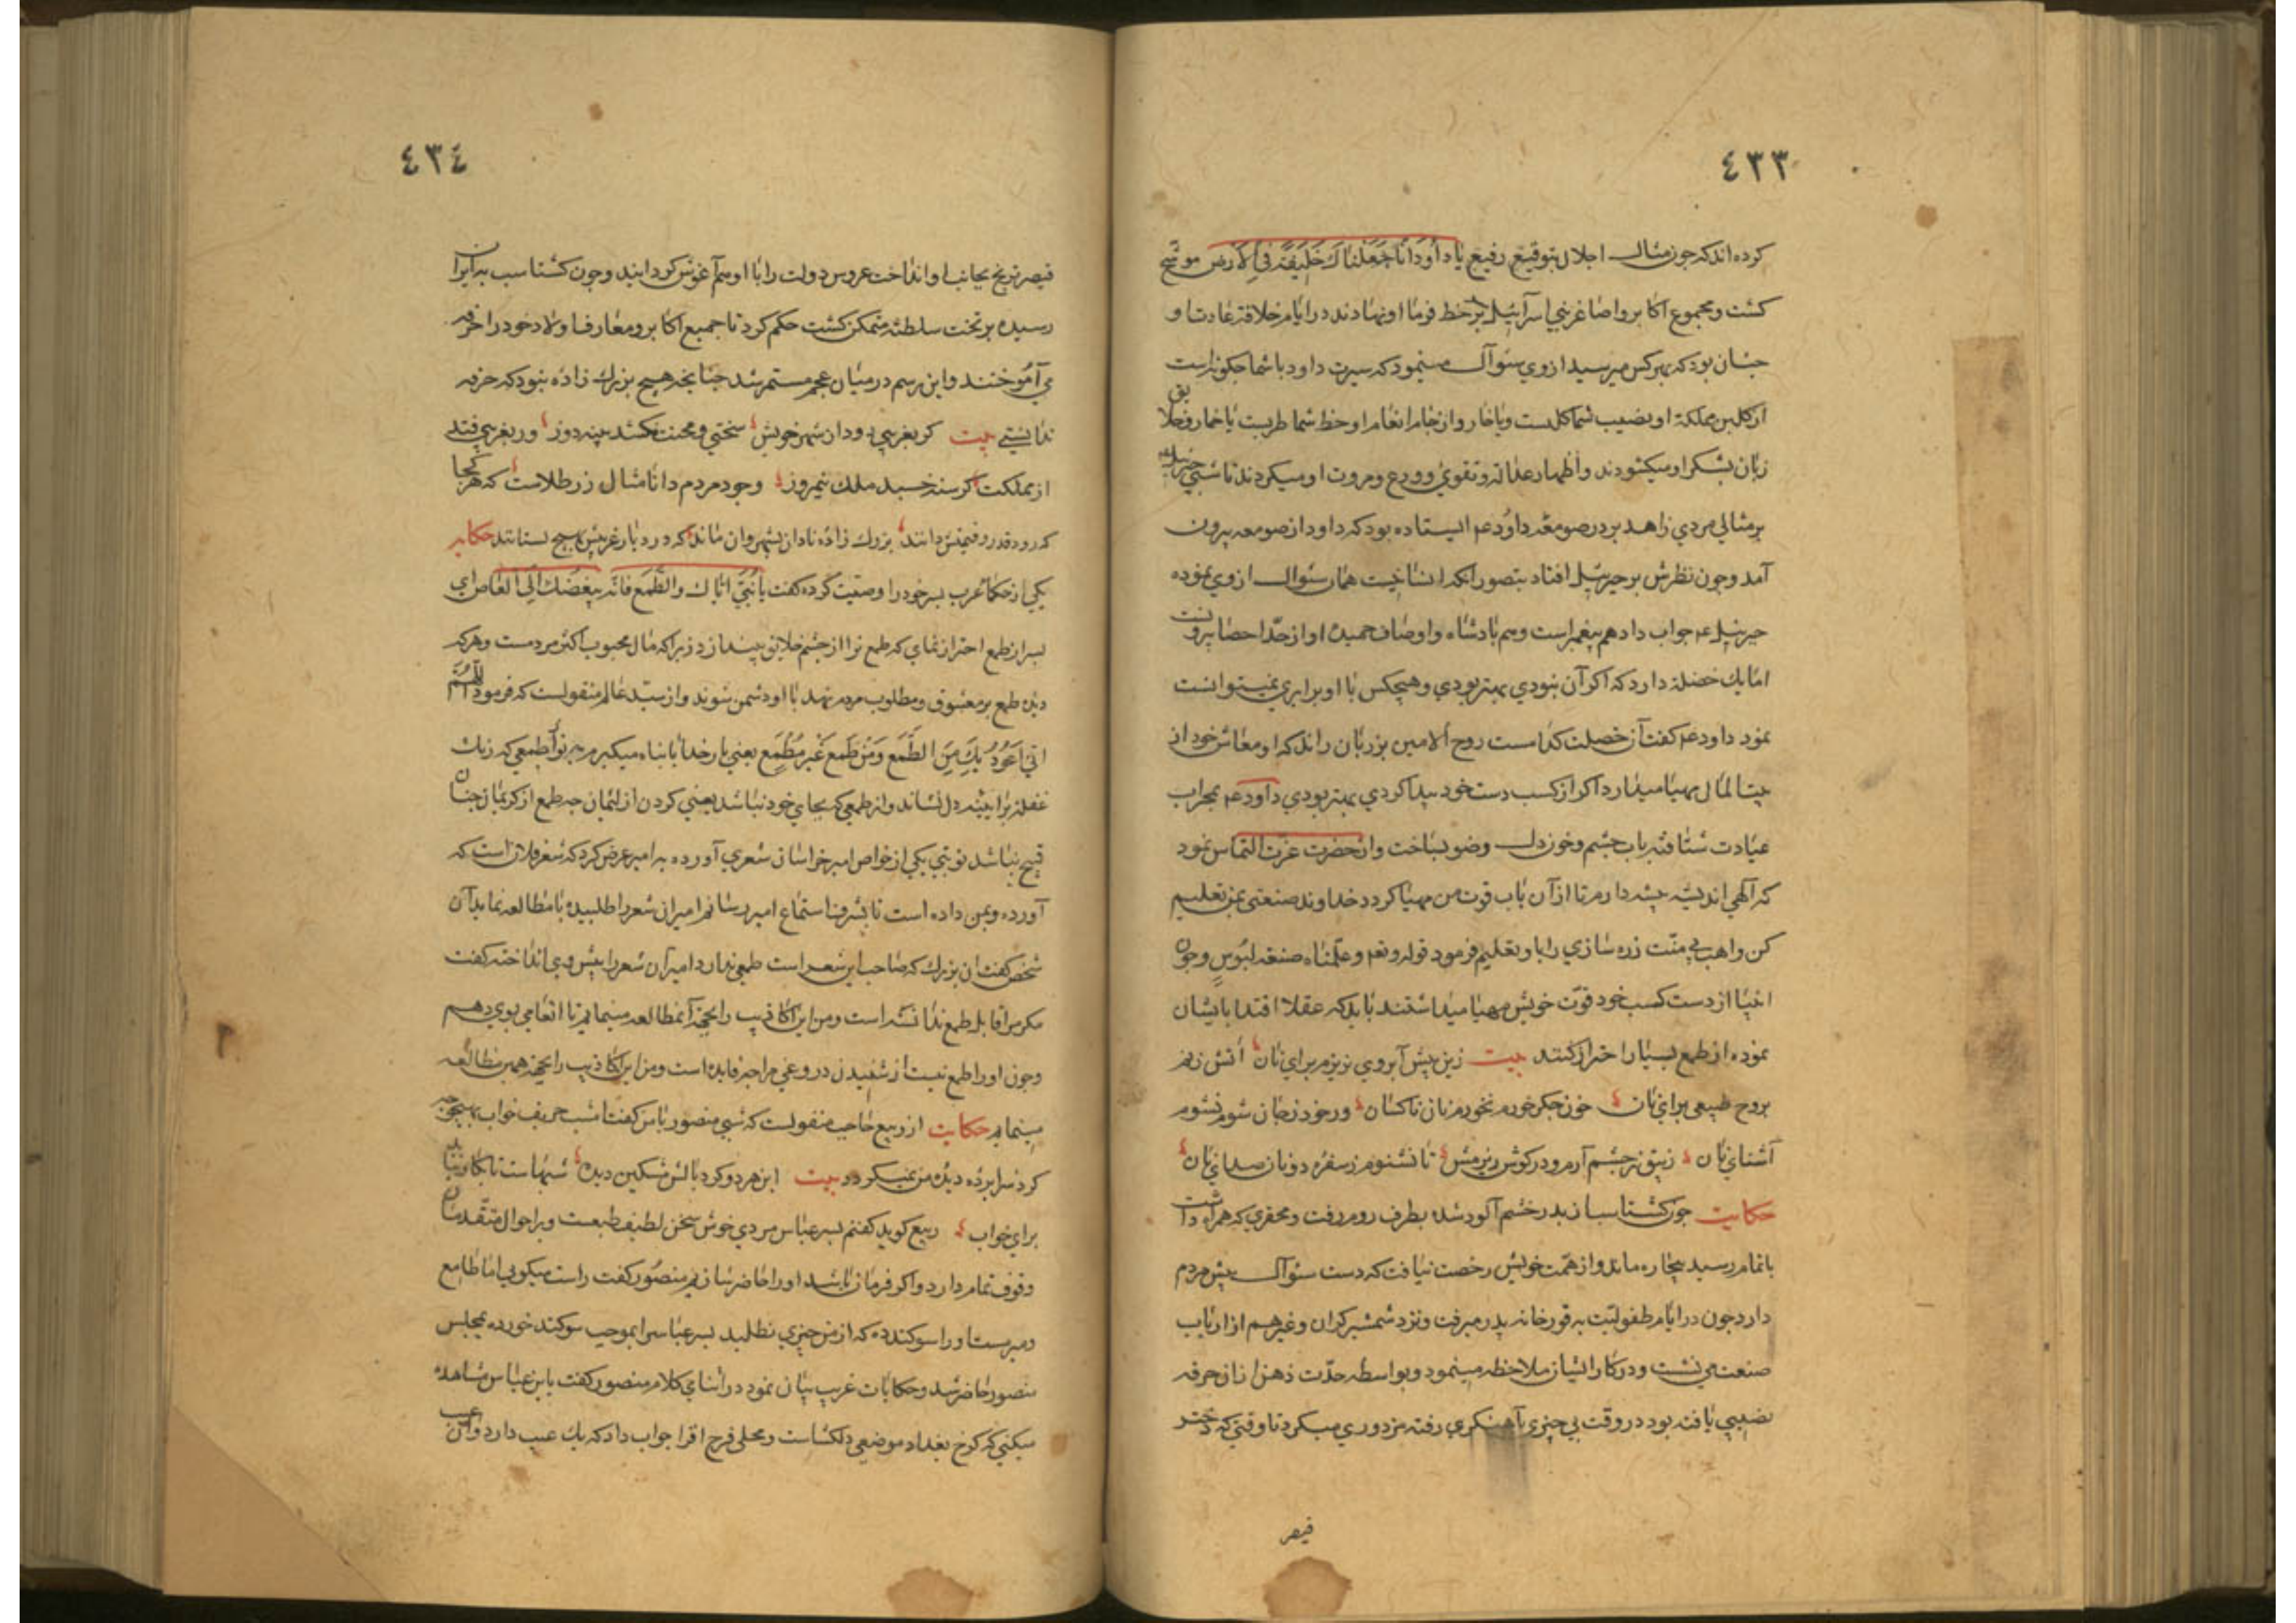 ٤٣٣
کرده‌اند که چون مثال اجلال بتوقیع رفیع یا داود انا جعلناک خلیفة فی الارض موشح
کشت و مجموع اکابر و اصاغر بنی اسرآئیل سر بر خط فرمان او نهادند در ایام خلافة عادت او
چنان بود که بهر کس میرسید از وی سئوال مینمود که سیرت داود با شما چکونه است
از کلبن مملکة او نصیب شما کلست و یا خار و از جام انعام او حظ شما طربست یا خمار خلایق
زبان بشکر او میکشودند و اظهار عدالة و تقوی و ورع و مروت او میکردند تا شبی جبرئیل
بر مثالی مردی زاهد بر در صومعه داود عم ایستاده بود که داود از صومعه بیرون
آمد و چون نظرش بر جبرئیل افتاد بتصور آنکه انسانیست همان سئوال از وی نموده
جبرئیل عم جواب داد هم پیغمبر است و هم پادشاه و اوصاف حمیده او از حد احصا بیرونست
اما یک خصلة دارد که اکر آن نبودی بهتر بودی و هیچکس با او برابری نمیتوانست
نمود داود عم کفت آن خصلت کدامست روح الامین بر زبان راند که او معاش خود از
بیت المال مهیا میدارد اکر از کسب دست خود پیدا کردی بهتر بودی داود عم بمحراب
عبادت شتافته بآب چشم و خون دل وضو بساخت و از حضرت عزت التماس نمود
که آلهی اندیشه پیشه دارم تا از آن باب قوت من مهیا کردد خداوند صنعتی بمن تعلیم
کن واهب بی منت زره سازی را باو تعلیم فرمود قوله و نعم و علمناه صنعة لبوس و چون
انبیا از دست کسب خود قوت خویش مهیا میداشتند باید که عقلا اقتدا بایشان
نموده از طمع بسیار احتراز کنند بیت زین پیش آبروی نریزم برای نان آتش زنم
بروح طبیعی برای نان خون جکر خورم نخورم نان ناکسان ور خود ز جان شوم نشوم
آشنای نان زیبق ز چشم آرم و در کوش ریزمش تا نشنوم ز سفره دونان صدای نان
حکایت چون کشتاسب از پدر خشم آلود شده بطرف روم رفت و محقری که همراه داشت
باتمام رسید بیچاره ماند و از همت خویش رخصت نیافت که دست سئوال پیش مردم
دارد چون در ایام طفولیت به قورخانه پدر میرفت و نزد شمشیرکران و غیرهم از ارباب
صنعت می نشست و در کار ایشان ملاحظه مینمود و بواسطه حدت ذهن از آن حرفه
نصیبی یافته بود در وقت بی چیزی بآهنکری رفته مزدوری میکرد تا وقتی که دختر
قیصر
٤٣٤
قیصر ترنج بجانب او انداخت عروس دولت را با او هم آغوش کردانید و چون کشتاسب به ایران
رسیده بر تخت سلطنة متمکن کشت حکم کرد تا جمیع اکابر و معارف اولاد خود را حرفه
می آموختند و این رسم در میان عجم مستمر شد چنانچه هیچ بزرک زاده نبود که حرفه
ندانستی بیت کر بغریبی رود از شهر خویش سختی و محنت نکشد پینه دوز ور بغریبی فتد
از مملکت کرسنه خسبد ملک نیمروز وجود مردم دانا مثال زر طلاست که هر کجا
که رود قدر و قیمتش دانند بزرک زاده نادان بشهر وا ماند که در دیار غریبش بهیچ نستانند حکایه
یکی از حکماء عرب پسر خود را وصیت کرده کفت یا بنی ایاک والطمع فانه یبغضک الی الناس ای
پسر از طمع احتراز نمای که طمع ترا از چشم خلایق بیندازد زیرا که مال محبوب اکثر مردمست و هر که
دیده طمع بر معشوق و مطلوب مردم نهد با او دشمن شوند و از سید عالم منقولست که فرمود اللهم
انی اعوذ بک من الطمع ومن طمع غیر مطمع یعنی بار خدایا پناه میکیرم بتو از طمعی که زنک
غفلة بر آیینه دل نشاند و از طمعی که بجای خود نباشد یعنی کردن از لئیمان چه طمع از کریمان چنان
قبیح نباشد نوبتی یکی از خواص امیر خراسان شعری آورده به امیر عرض کرد که شعر فلان است که
آورده و بمن داده است تا بشرف استماع امیر رسانم امیر آن شعر را طلبیده با مطالعه نماید آن
شخص کفت آن بزرک که صاحب این شعر است طمعی ندارد امیر آن شعر را پیش وی انداخته کفت
مکر مرا قابل طمع ندانسته است و من این اکاذیب را بجهة آن مطالعه مینمایم تا انعامی بوی دهم
و چون او را طمع نیست از شنیدن دروغی مرا چه فایده است و من این اکاذیب را بجهة همین مطالعه
مینمایم حکایت از ربیع حاجب منقولست که شبی منصور با من کفت امشب حریف خواب بهیچ وجه
کرد سراپرده دیده من نمیکردد بیت این هر دو کرد بالش مشکین دیده شبهاست تا نیافته
برای خواب ربیع کوید کفتم پسر عباس مردی خوش سخن لطیف طبعست و بر احوال متقدمان
وقوف تمام دارد و اکر فرمان باشد او را حاضر سازیم منصور کفت راست میکویی اما طامع
و مبرمست او را سوکند ده که از من چیزی نطلبد پسر عباس را بموجب سوکند خورده بمجلس
منصور حاضر شد و حکایات غریب بیان نمود در اثنای کلام منصور کفت یا ابن عباس مشاهده
میکنی که کرخ بغداد موضعی دلکشاست و محلی فرح افزا جواب داد که یک عیب دارد و آن